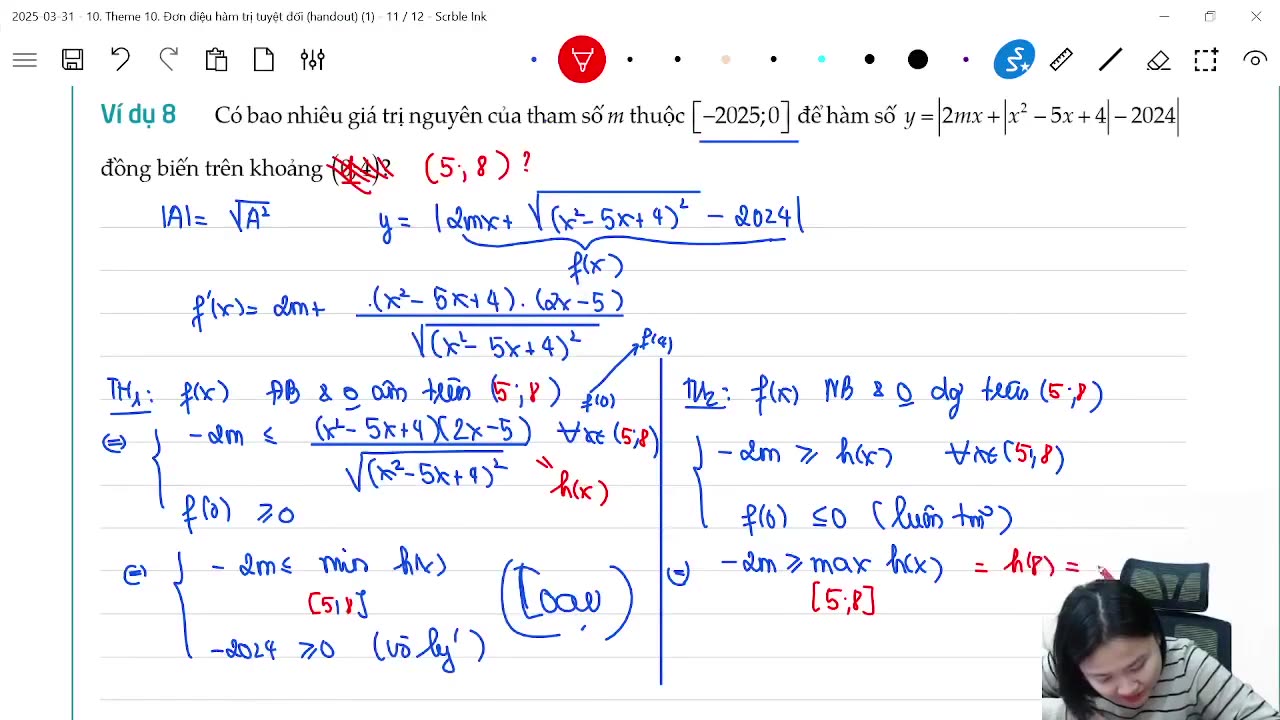 2025-03-31 - 10. Theme 10. Đơn điệu hàm trị tuyệt đối (handout) (1) - 11 / 12 - Scrble Ink
Ví dụ 8 Có bao nhiêu giá trị nguyên của tham số m thuộc [−2025;0] để hàm số y = |2mx + |x² − 5x + 4| − 2024|
đồng biến trên khoảng (5; 8) ?
|A| = √A² y = |2mx + √(x² − 5x + 4)² − 2024|
f(x)
f'(x) = 2m + .(x² − 5x + 4).(2x − 5) / √(x² − 5x + 4)²
f(4)
TH1: f(x) ĐB & 0 âm trên (5; 8)
f(0)
⇔ { −2m ≤ (x² − 5x + 4)(2x − 5) / √(x² − 5x + 4)² ∀x∈(5;8)
h(x)
f(0) ≥ 0
⇔ { −2m ≤ min h(x)
[5;8]
−2024 ≥ 0 (vô lý)
(Loại)
TH2: f(x) NB & 0 dg trên (5;8)
{ −2m ≥ h(x) ∀x∈(5;8)
f(0) ≤ 0 (luôn tm)
⇔ −2m ≥ max h(x) = h(8) =
[5;8]